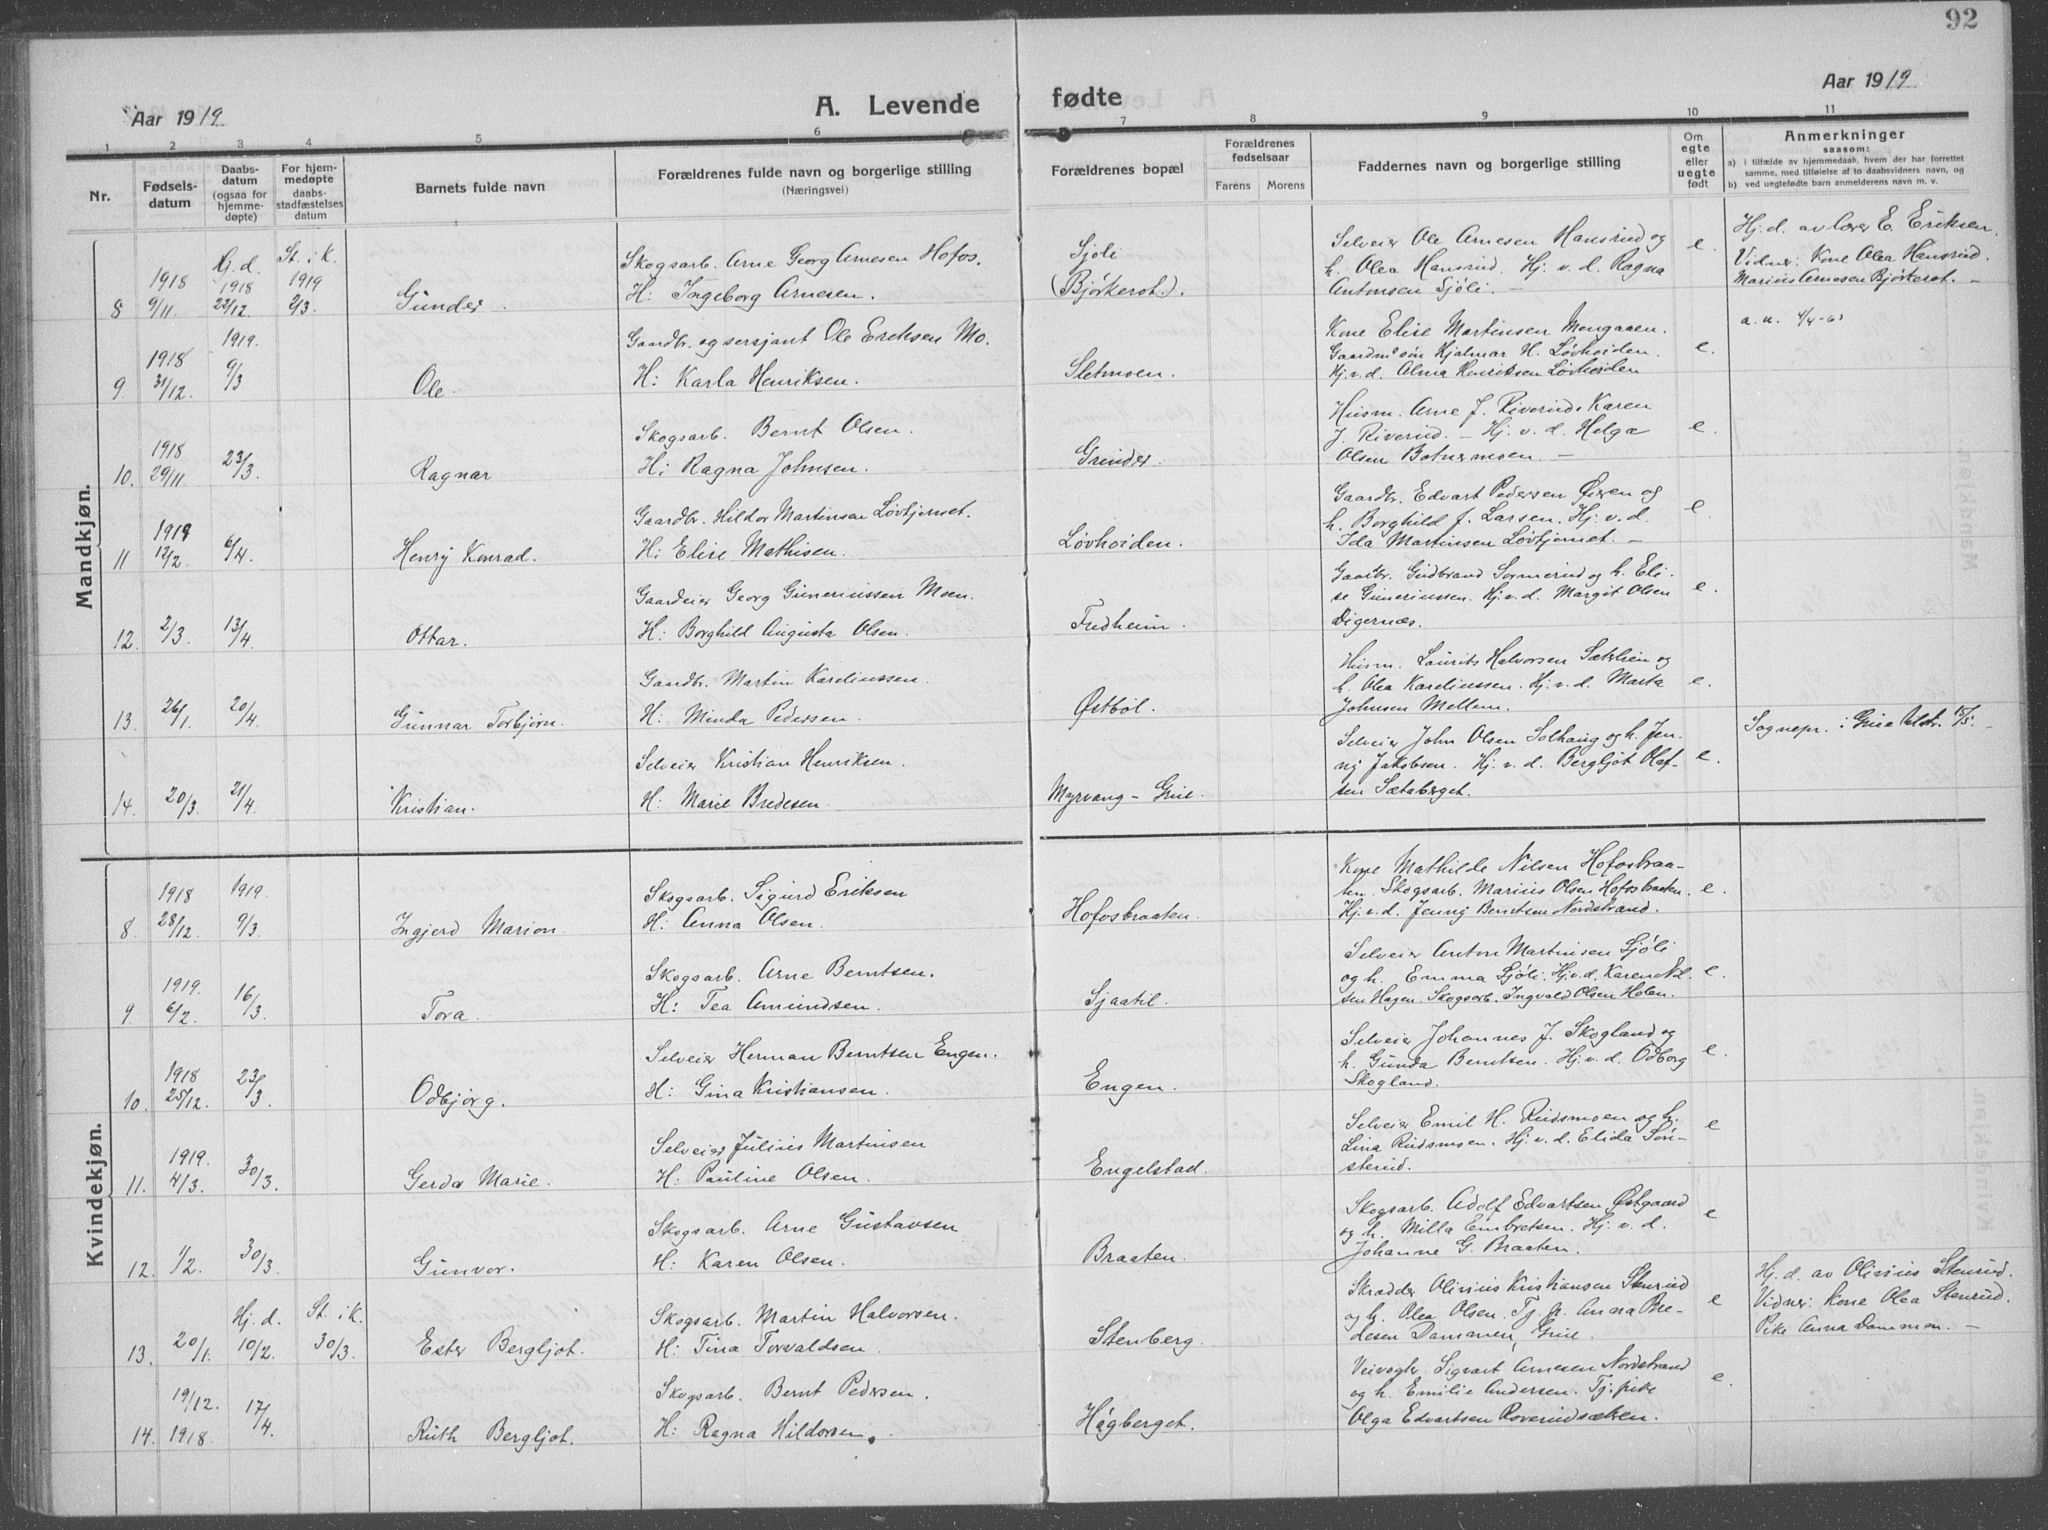 92
Aar 1919
A. Levende
fødte
Aar 1919
1 2 3 4 5 6 7 8 9 10 11
Nr.
Fødsels-
datum
Daabs-
datum
(ogsaa for
hjemme-
døpte)
For hjem-
medøpte
daabs-
stadfæstelses
datum
Barnets fulde navn
Forældrenes fulde navn og borgerlige stilling
(Næringsvei)
Forældrenes bopæl
Forældrenes
fødselsaar
Farens Morens
Faddernes navn og borgerlige stilling
Om
egte
eller
uegte
født
Anmerkninger
saasom:
a) i tilfælde av hjemmedaab, hvem der har forrettet
samme, med tilføielse af to daabsvidners navn, og
b) ved uegtefødte barn anmelderens navn m. v.
Mandkjøn.
Hj. d. St. i K.
1918 1918 1919
8 9/11. 22/12. 2/3. Gunder.
Skogsarb. Arne Georg Arnesen Hofos.
H: Ingeborg Arnesen.
Sjöli
(Björkerot.).
Selveier Ole Arnesen Hansrud og
h. Olea Hansrud. Hj. v. d. Ragna
Antonsen Sjöli. —
e.
Hj. d. av lærer E. Eriksen.
Vidner: Kone Olea Hansrud.
Marius Arnesen Björkerot. —
1918 1919.
9. 31/12. 9/3 Ole.
Gaardbr. og sersjant Ole Eriksen Mo.
H: Karla Henriksen.
Sletmoen.
Kone Elise Martinsen Mengaaen.
Gaardm. sön Hjalmar H. Lövhöiden.
Hj. v. d. Alma Henriksen Lövhöiden
e.
a. u.
1918
10. 29/11 23/3. Ragnar
Skogsarb. Bernt Olsen.
H: Ragna Johnsen.
Grinder.
Husm. Arne J. Riverud. Karen
J. Riverud. — Hj. v. d. Helga
Olsen Botnermoen. —
e.
1919
11 12/2. 6/4. Henry Konrad.
Gaardbr. Hildor Martinsen Lövtjernet.
H: Elise Mathisen.
Lövhöiden.
Gaardbr. Edvart Pedersen Öieren og
h. Borghild f. Larsen. Hj. v. d.
Ida Martinsen Lövtjernet. —
e.
12. 2/3. 13/4. Ottar.
Gaardeier Georg Gunerinssen Moen.
H: Borghild Augusta Olsen.
Fredheim.
Gaardbr. Gudbrand Sormerud og h. Eli-
se Gunerinssen. Hj. v. d. Margit Olsen
Digernæs.
e.
13. 26/1. 20/4. Gunnar Torbjörn.
Gaardbr. Martin Kareliussen.
H: Minda Pedersen.
Östböl.
Husm. Laurits Halvorsen Sætrlien og
h. Olea Kareliussen. Hj. v. d. Marta
Johnsen Mellem.
e.
14. 20/3. 21/4. Kristian.
Selveier Kristian Henriksen.
H: Marie Bredesen.
Myrvang - Grue.
Selveier John Olsen Solhaug og h. Jen-
ny Jakobsen. Hj. v. d. Bergljot Olaf-
sen Sætaberget.
e.
Sognepr. i Grue Utstr. 15/5.
Kvindekjøn.
1918 1919.
8. 28/12. 9/3. Ingjerd Marion.
Skogsarb. Sigurd Eriksen
H: Anna Olsen.
Hofosbraaten.
Kone Mathilde Nilsen Hofosbraa-
ten. Skogsarb. Marius Olsen Hofosbraaten.
Hj. v. d. Jenny Berntsen Nordstrand.
e.
1919.
9. 6/2. 16/3. Tora.
Skogsarb. Arne Berntsen.
H: Tea Amundsen.
Sjaatil.
Selveier Anton Martinsen Sjöli
og h. Emma Sjöli. Hj. v. d. Karen Nil-
sen Hagen. Skogsarb. Ingvald Olsen Holen.
e.
1918
10. 25/12. 23/3 Odbjörg.
Selveier Herman Berntsen Engen.
H: Gina Kristiansen.
Engen.
Selveier Johannes J. Skogland og
h. Gunda Berntsen. Hj. v. d. Odborg
Skogland.
e.
1919.
11. 4/3. 30/3. Gerda Marie.
Selveier Julius Martinsen
H: Pauline Olsen.
Engelstad.
Selveier Emil H. Rudsmoen og h.
Lina Rudsmoen. Hj. v. d. Elida Sön-
sterud.
e
12. 1/2. 30/3. Gunvor.
Skogsarb. Arne Gustavsen
H: Karen Olsen.
Braaten.
Skogsarb. Adolf Edvartsen Östgaard
og h. Milla Embretsen. Hj. v. d.
Johanne G. Braaten.
e
Hj. d. St. i K.
13. 20/1. 10/2. 30/3. Ester Bergljot.
Skogsarb. Martin Halvorsen.
H: Tina Torvaldsen.
Stenberg.
Skrædder Olinius Kristiansen Stenrud
og h. Olea Olsen. Tj. p. Anna Bre-
desen Dammen, Grue.
e
Hj. d. av Olinius Stenrud.
Vidner: Kone Olea Stenrud.
Pike Anna Dammen. —
19/12.
14. 1918. 17/4. Ruth Bergljot.
Skogsarb. Bernt Pedersen.
H: Ragna Hildorsen.
Hågberget.
Veivogter Sigvart Arnesen Nordstrand
og h. Emilie Andersen. Tj. pike
Olga Edvartsen Roverudsætren.
e.